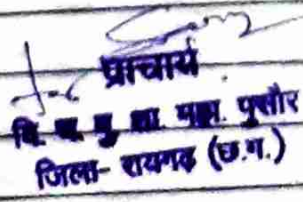 प्राचार्य
वि. ब. भु. शा. महा. पुसौर
जिला- रायगढ़ (छ.ग.)